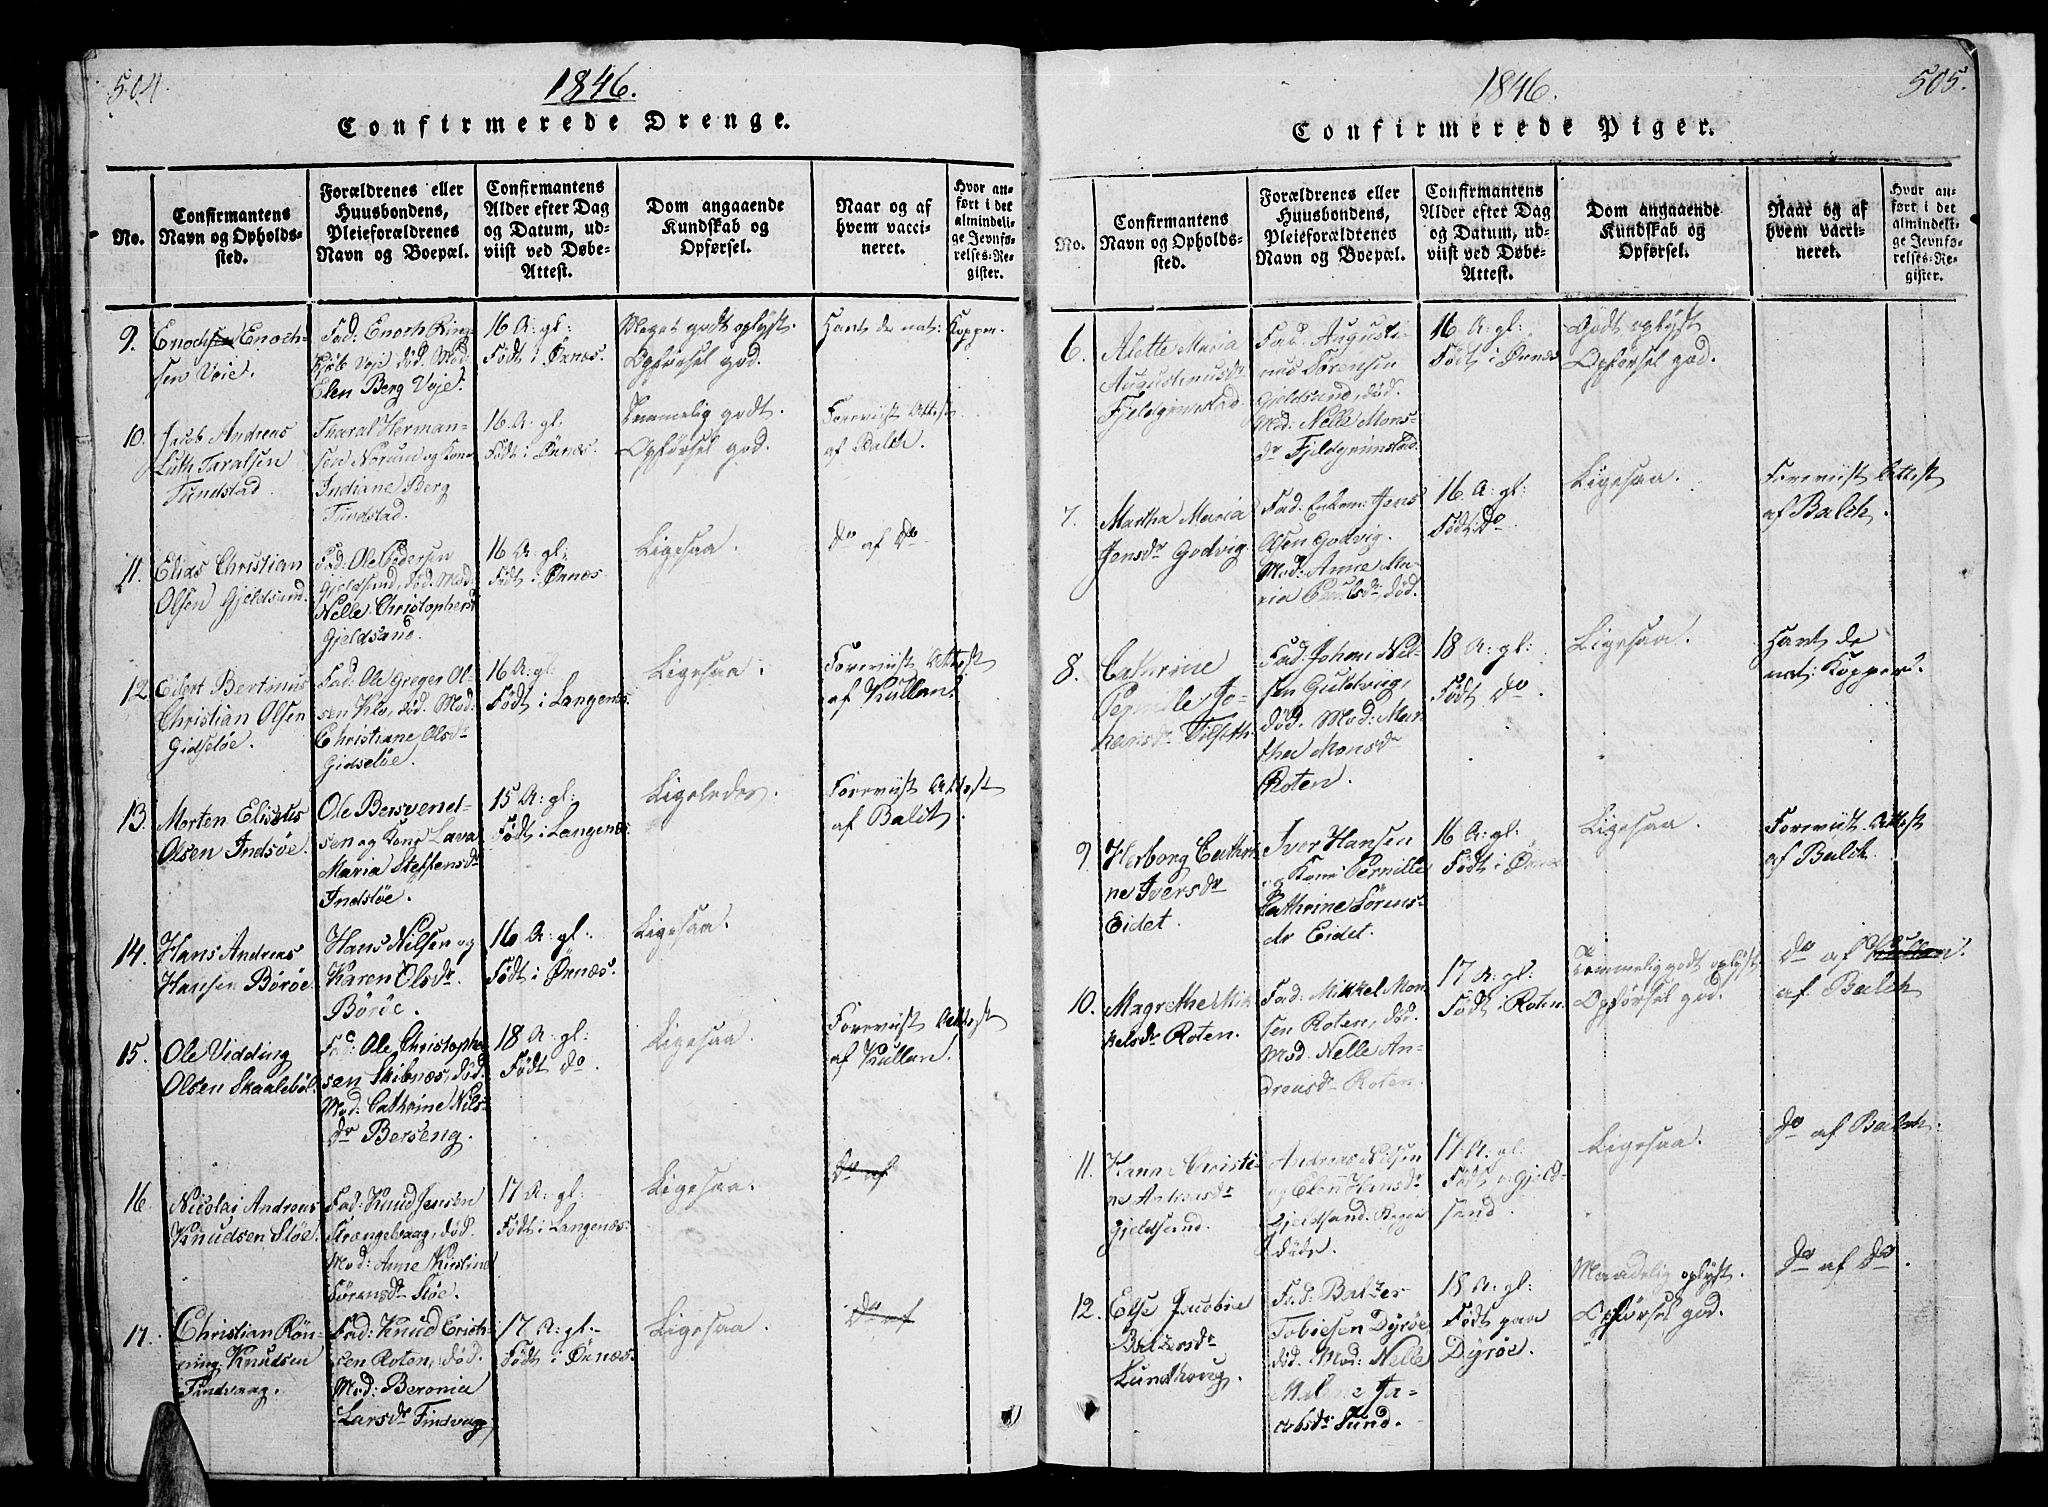 504.
1846.
Confirmerede Drenge.
No.
Confirmantens
Navn og Opholds-
sted.
Forældrenes eller
Huusbondens,
Pleieforældrenes
Navn og Boepæl.
Confirmantens
Alder efter Dag
og Datum, ud-
viist ved Døbe-
Attest.
Dom angaaende
Kundskab og
Opførsel.
Naar og af
hvem vacci-
neret.
Hvor an-
ført i det
almindeli-
ge Jevnfø-
relses-Re-
gister.
9.
Enoch Enoch-
sen Vøie.
Fad: Enoch Ring
Kjøb Vøje død. Mod
Elen Berg Vøje.
16 A: gl:
Født i Ørnæs.
Meget godt oplyst.
Opførsel god.
Havt de nat: Kopper.
10.
Jacob Andreas
Luth Taralsen
Tundstad
Tharal Herman-
sen Norund og Kone
Indiane Berg
Tindstad.
16 A. gl.
Født i Ørnæs.
Temmelig godt.
Opførsel god.
Foreviist Attest
af Balch.
11.
Elias Christian
Olsen Gjeldsund.
Fad: Ole Pedersen
Gjeldsund, død. Mod:
Nelle Christophersd
Gjeldsand.
16 A: gl:
Født i Ørnæs.
Ligesaa.
Do af Do
12.
Eilert Bertinus
Christian Olsen
Gidsløe.
Fad: Ole Greger Ol-
sen Klo, død. Mod:
Christiane Olsdr
Gidsløe.
16 A: gl:
Født i Langenæs.
Ligesaa.
Foreviist Attest
af Kullan.
13.
Morten Eliseus
Olsen Indsøe.
Ole Bersvend-
sen og Kone Lava
Maria Steffensdr
Indsløe.
15 A: gl:
Født i Langenæs.
Ligeledes.
Foreviist Attest
af Balch.
14.
Hans Andreas
Hansen Børøe.
Hans Nilsen og
Karen Olsdr
Børøe.
16 A: gl:
Født i Ørnæs.
Ligesaa.
15.
Ole Vidding
Olsen Skaalebøl.
Fad: Ole Christopher
sen Skibnæs, død.
Mod: Cathrine Nils-
dr Berseng.
18 A: gl:
Født do.
Ligesaa.
Foreviist Attest
af Kullan.
16.
Nicolai Andreas
Knudsen Sløe.
Fad: Knud Jensen
Strængelvaag, død.
Mod: Anne Kirstine
Sørensdr Sløe.
17 A: gl:
Født i Langenæs.
Ligesaa.
Do af
17.
Christian Røn-
ning Knudsen
Tindvaag.
Fad: Knud Erich-
sen Roten, død.
Mod: Beronia
Larsdr Tindvaag
17 A: gl:
Født i Ørnæs.
Ligesaa.
Do af
1846.
505.
Confirmerede Piger.
No.
Confirmantens
Navn og Opholds-
sted.
Forældrenes eller
Huusbondens,
Pleieforældrenes
Navn og Boepæl.
Confirmantens
Alder efter Dag
og Datum, ud-
viist ved Døbe-
Attest.
Dom angaaende
Kundskab og
Opførsel.
Naar og af
hvem vacci-
neret.
Hvor an-
ført i det
almindeli-
ge Jevnfø-
relses-Re-
gister.
6.
Alette Maria
Augustinusdr
Fjeldgrimstad.
Fad: Augusti-
nus Sørensen
Gjeldsund, død.
Mod: Nelle Mons-
dr Fjeldgrimstad.
16 A: gl:
Født i Ørnæs
Godt oplyst
Opførsel god.
7.
Martha Maria
Jensdr Godvig
Fad: Enkem: Jens
Olsen Godvig.
Mod: Anne Ma-
ria Paulsdr, død.
16 A: gl:
Født do
Ligesaa.
Foreviist Attest
af Balch.
8.
Cathrine
Pernille Jo-
hansdr Tilseth.
Fad: Johan Nil-
sen Guldvug,
død. Mod: Mar-
tha Monsdr
Roten.
18 A: gl:
Født do.
Ligesaa.
Havt de
nat: Kopper.
9
Herborg Cathri-
ne Iversdr
Eidet.
Iver Hansen
og Kone Pernille
Cathrine Sørens-
dr Eidet.
16 A: gl:
Født i Ørnæs
Ligesaa.
Foreviist Attest
af Balch.
10.
Magrethe Mik
kelsdr Roten.
Fad: Mikkel Mon
sen Roten, død.
Mod: Nelle An-
dreasdr Roten.
17 A: gl:
Født i Roten.
Temmelig godt oplyst
Opførsel god.
Do af Kullan.
af Balch
11.
Hanne Christi-
ne Andreasdr
Gjeldsund.
Andreas Nilsen
og Elen Hansdr
Gjeldsand. Begge
døde.
17 A: gl:
Født i Gjeld-
sand.
Ligesaa.
Do af Balch.
12.
Else Jacobie
Baltzersdr
Lundhoug.
Fad: Balzer
Tobiesen Dyrøe
død. Mod: Nelle
Malene Ja-
cobsdr Sund.
18 A: gl:
Født paa
Dyrøe.
Maadelig oplyst.
Opførsel god.
Do af Do.